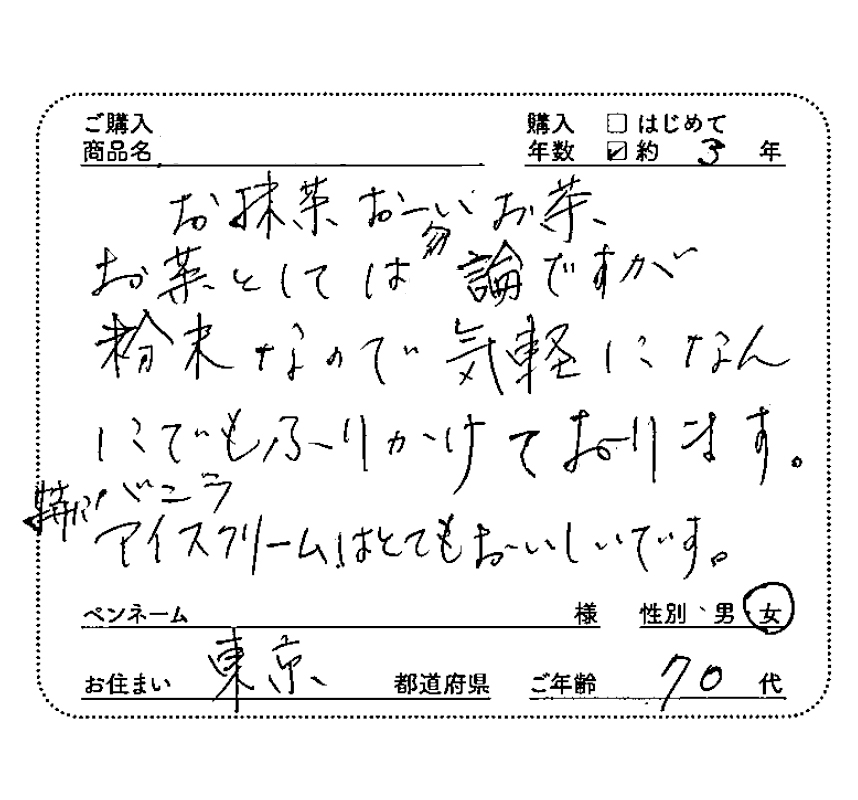 ご購入 購入 □ はじめて
商品名 年数 ☑ 約 3 年
お抹茶おーいお茶、
お茶としては勿論ですが
粉末なので気軽になん
にでもふりかけております。
特にバニラ
アイスクリームはとてもおいしいです。
ペンネーム 様 性別、男 女
お住まい 東京 都道府県 ご年齢 70 代